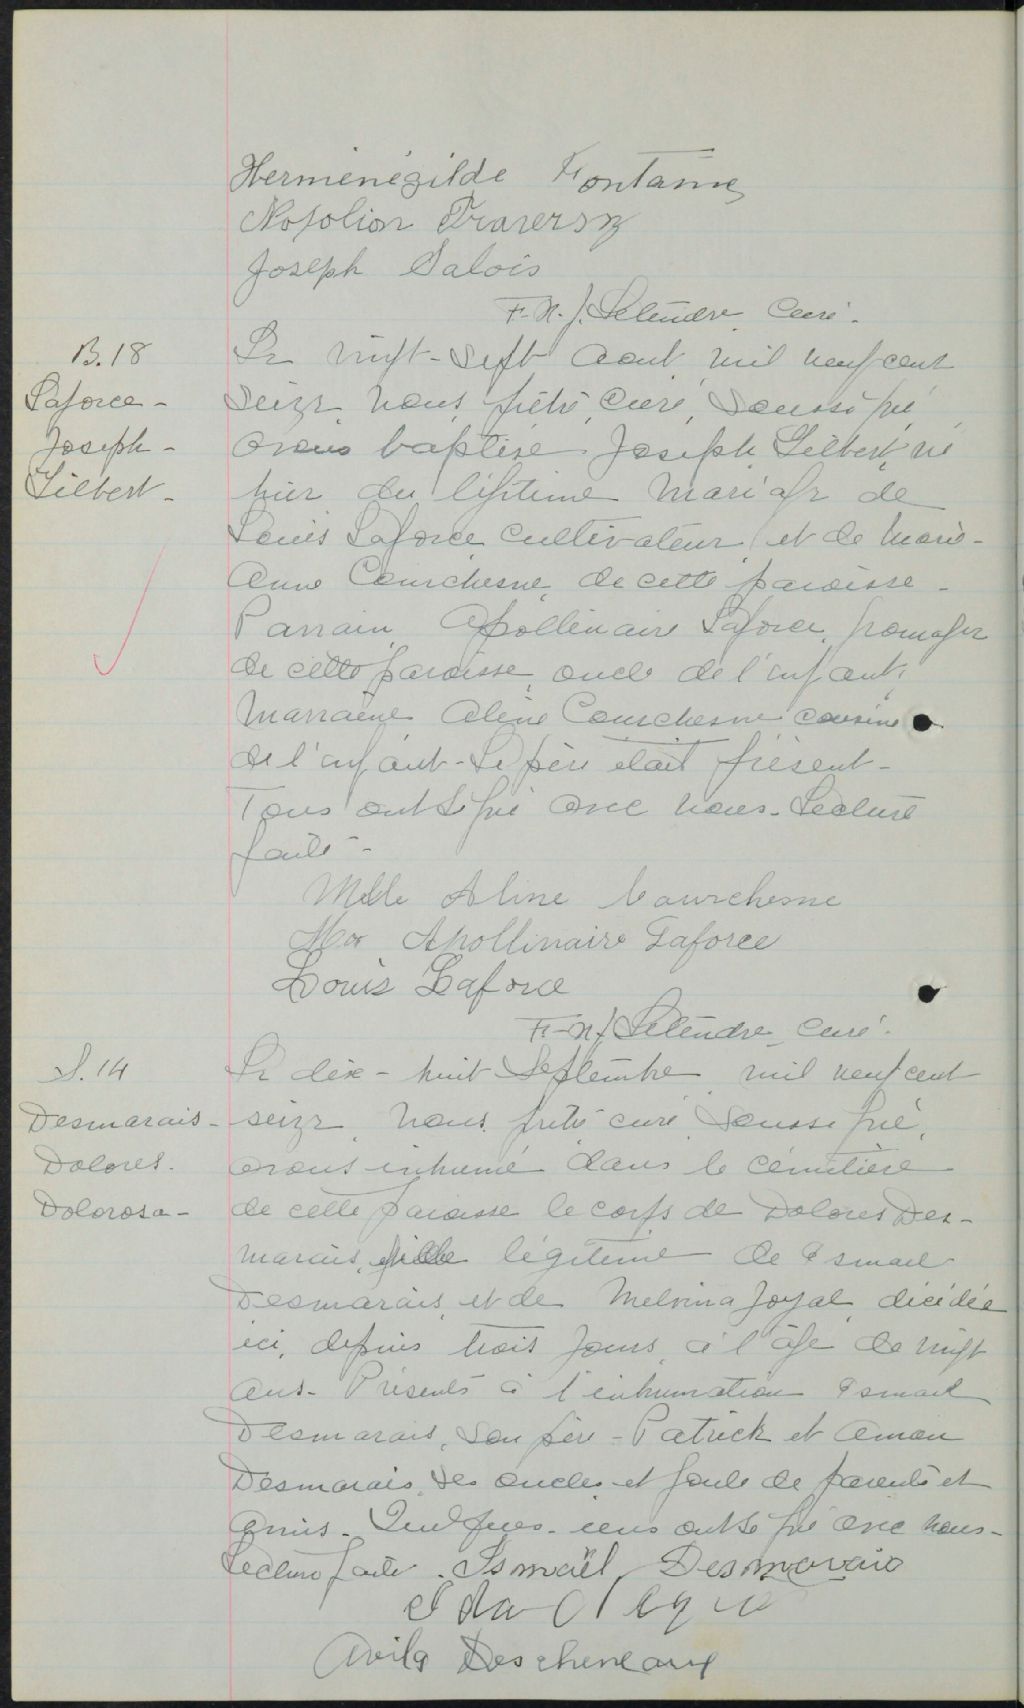 Herménégilde Fontaine
Napoléon Traversy
Joseph Salois
F.-N.-J. Letendre, Curé.
B.18
Le vingt-sept Aout mil neuf cent
Laforce -
seize, nous, prêtre, curé, soussigné,
Joseph -
avons baptisé Joseph Gilbert né
Gilbert -
hier du légitime mariage de
Louis Laforce cultivateur, et de Marie-
Anne Courchesne, de cette paroisse -
Parrain, Apollinaire Laforce, fromager
de cette paroisse, oncle de l'enfant,
Marraine Aline Courchesne cousine
de l'enfant - Le père était présent -
Tous ont signé avec nous. Lecture
faite -
Melle Aline Courchesne
Mr Apollinaire Laforce
Louis Laforce
F.-N.-J. Letendre, curé.
S.14
Le dix-huit Septembre, mil neuf cent
Desmarais -
seize, nous, prêtre, curé, soussigné,
Dolores.
avons inhumé dans le cimetière
Dolorosa -
de cette paroisse le corps de Dolores Des-
marais, fille légitime de Ismael
Desmarais, et de Melvina Joyal, décédée
ici, depuis trois jours, à l'âge de vingt
ans - Présents à l'inhumation Ismael
Desmarais, son père - Patrick et
Desmarais, ses oncles et foule de parents et
amis - Quelques-uns ont signé avec nous -
Lecture faite. Ismaël Desmarais
Avila Descheneaux